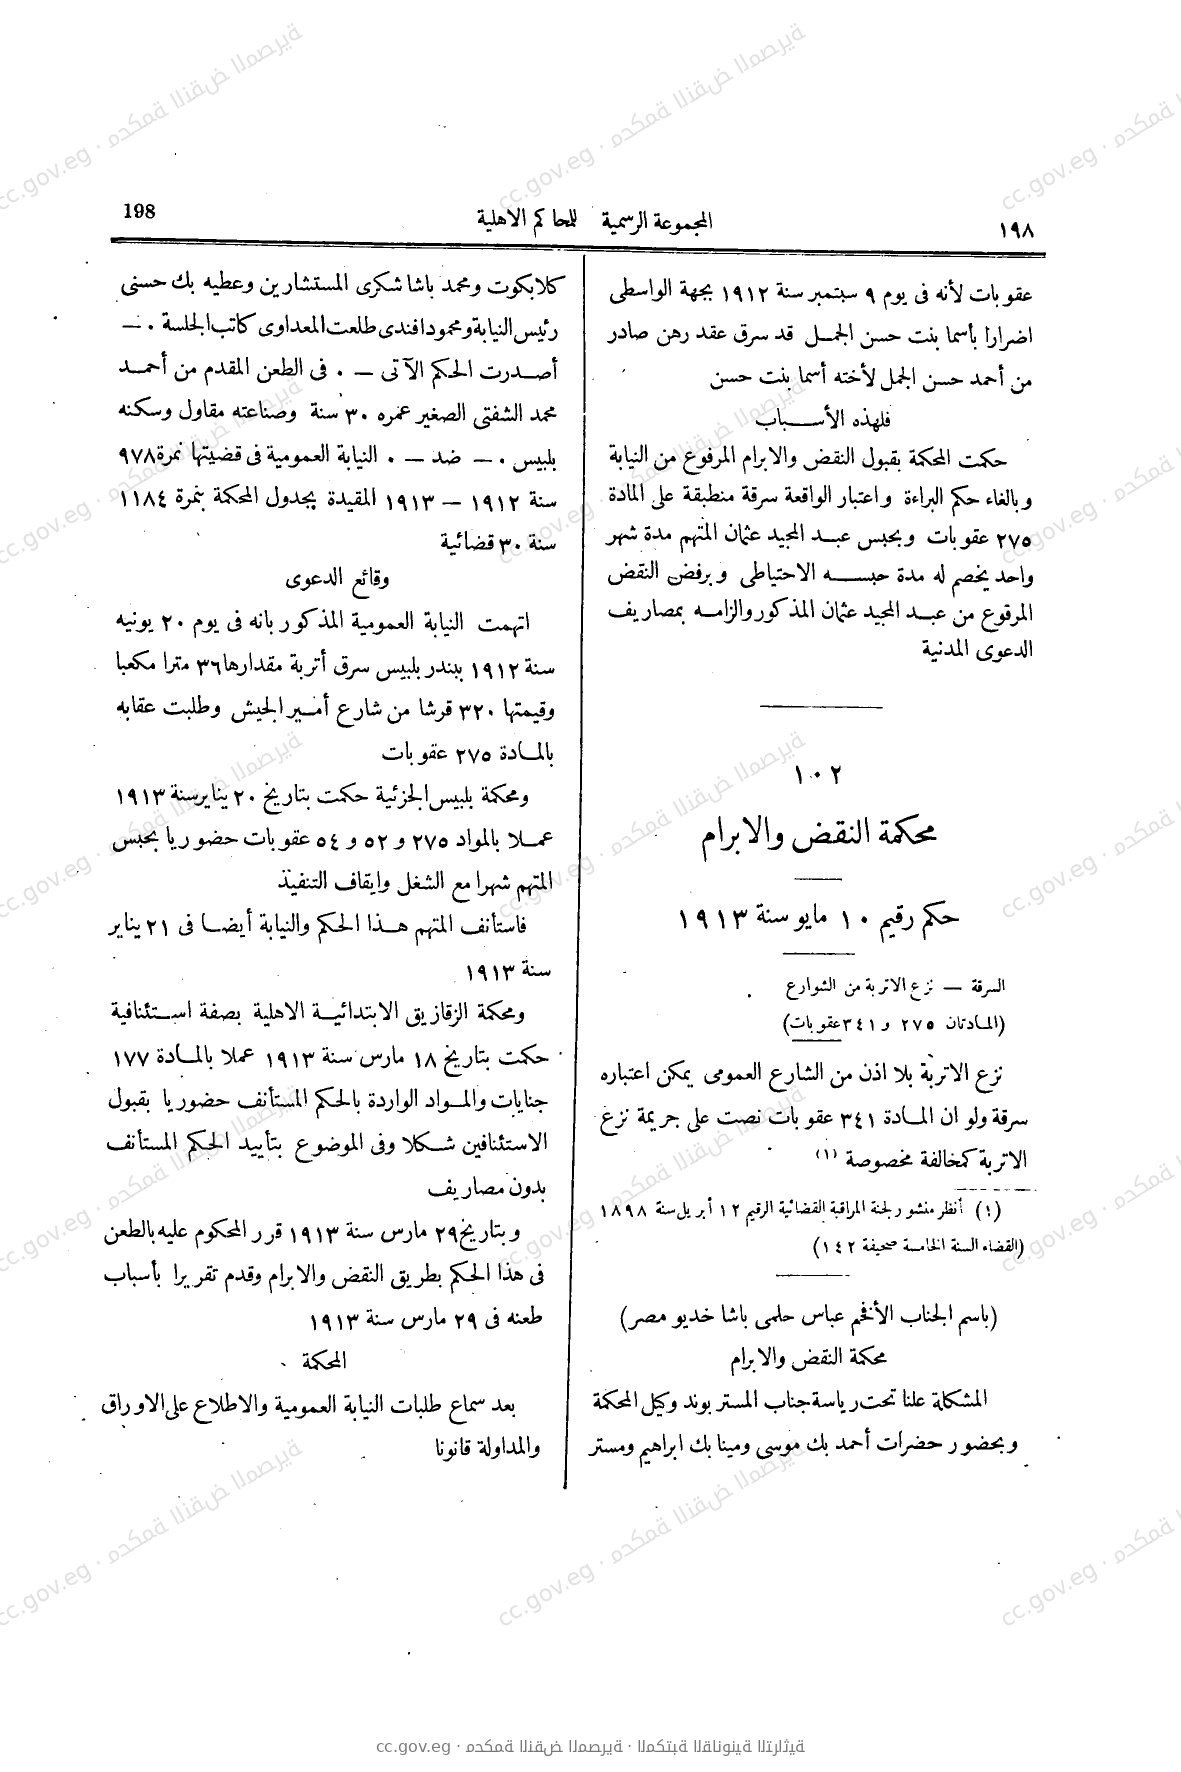 ١٩٨
المجموعة الرسمية للمحاكم الاهلية
198
عقوبات لأنه فى يوم ٩ سبتمبر سنة ١٩١٢ بجهة الواسطى
اضرارا بأسما بنت حسن الجمل قد سرق عقد رهن صادر
من أحمد حسن الجمل لأخته أسما بنت حسن
فلهذه الأسباب
حكمت المحكمة بقبول النقض والابرام المرفوع من النيابة
وبالغاء حكم البراءة واعتبار الواقعة سرقة منطبقة على المادة
٢٧٥ عقوبات وبحبس عبد المجيد عثمان المتهم مدة شهر
واحد يخصم له مدة حبسه الاحتياطى وبرفض النقض
المرفوع من عبد المجيد عثمان المذكور والزامه بمصاريف
الدعوى المدنية
١٠٢
محكمة النقض والابرام
حكم رقيم ١٠ مايو سنة ١٩١٣
السرقة — نزع الاتربة من الشوارع
(المادتان ٢٧٥ و ٣٤١ عقوبات)
نزع الاتربة بلا اذن من الشارع العمومى يمكن اعتباره
سرقة ولو ان المادة ٣٤١ عقوبات نصت على جريمة نزع
الاتربة كمخالفة مخصوصة (١)
(١) أنظر منشور لجنة المراقبة القضائية الرقيم ١٢ أبريل سنة ١٨٩٨
(القضاء السنة الخامسة صحيفة ١٤٢)
(باسم الجناب الأفخم عباس حلمى باشا خديو مصر)
محكمة النقض والابرام
المشكلة علنا تحت رياسة جناب المستر بوند وكيل المحكمة
وبحضور حضرات أحمد بك موسى ومينا بك ابراهيم ومستر
كلابكوت ومحمد باشا شكرى المستشارين وعطيه بك حسنى
رئيس النيابة ومحمود افندى طلعت المعداوى كاتب الجلسة . —
أصدرت الحكم الآتى — . فى الطعن المقدم من أحمد
محمد الشفتى الصغير عمره ٣٠ سنة وصناعته مقاول وسكنه
بلبيس . — ضد — . النيابة العمومية فى قضيتها نمرة ٩٧٨
سنة ١٩١٢ — ١٩١٣ المقيدة بجدول المحكمة بنمرة ١١٨٤
سنة ٣٠ قضائية
وقائع الدعوى
اتهمت النيابة العمومية المذكور بانه فى يوم ٢٠ يونيه
سنة ١٩١٢ ببندر بلبيس سرق أتربة مقدارها ٣٦ مترا مكعبا
وقيمتها ٣٢٠ قرشا من شارع أمير الجيش وطلبت عقابه
بالمادة ٢٧٥ عقوبات
ومحكمة بلبيس الجزئية حكمت بتاريخ ٢٠ يناير سنة ١٩١٣
عملا بالمواد ٢٧٥ و ٥٢ و ٥٤ عقوبات حضوريا بحبس
المتهم شهرا مع الشغل وايقاف التنفيذ
فاستأنف المتهم هذا الحكم والنيابة أيضا فى ٢١ يناير
سنة ١٩١٣
ومحكمة الزقازيق الابتدائية الاهلية بصفة استئنافية
حكمت بتاريخ ١٨ مارس سنة ١٩١٣ عملا بالمادة ١٧٧
جنايات والمواد الواردة بالحكم المستأنف حضوريا بقبول
الاستئنافين شكلا وفى الموضوع بتأييد الحكم المستأنف
بدون مصاريف
وبتاريخ ٢٩ مارس سنة ١٩١٣ قرر المحكوم عليه بالطعن
فى هذا الحكم بطريق النقض والابرام وقدم تقريرا بأسباب
طعنه فى ٢٩ مارس سنة ١٩١٣
المحكمة
بعد سماع طلبات النيابة العمومية والاطلاع على الاوراق
والمداولة قانونا
cc.gov.eg · محكمة النقض المصرية · المكتبة القانونية التراثية